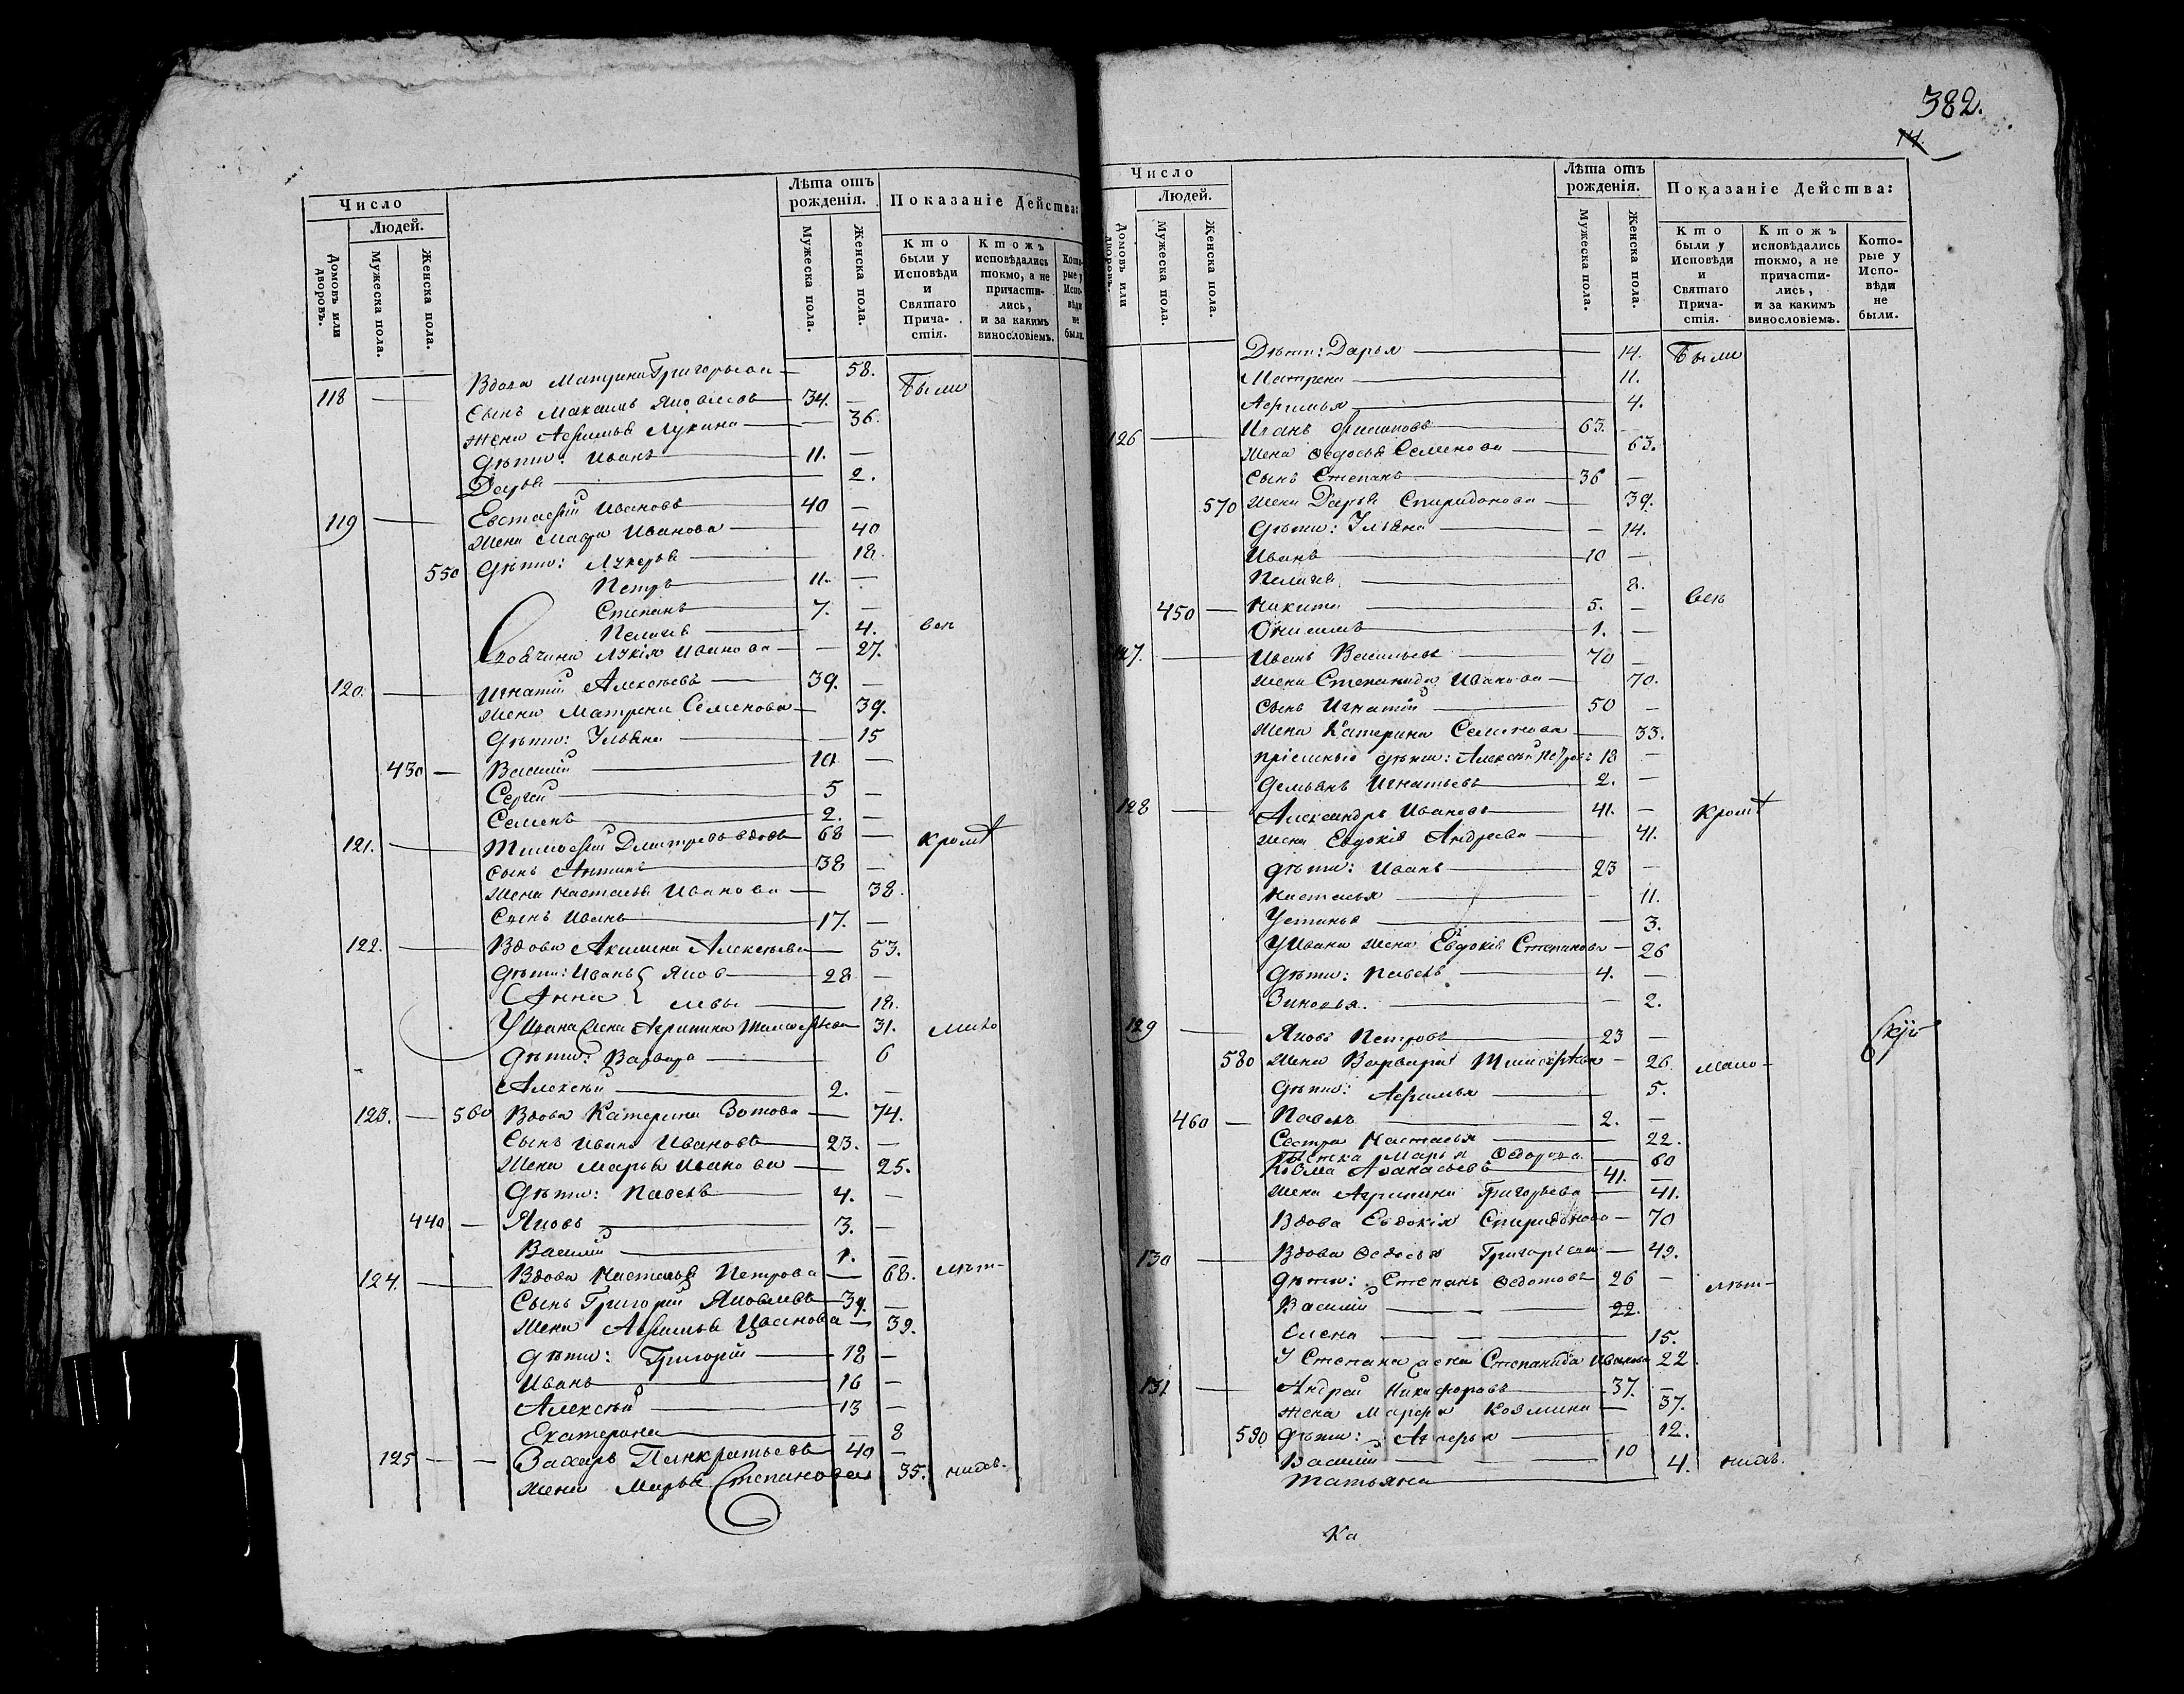 Число
Людей.
Домовъ или дворовъ.
Мужеска пола.
Женска пола.
Лѣта отъ рожденія.
Мужеска пола.
Женска пола.
Показаніе Действа:
Кто были у Исповѣди и Святаго Причастія.
Ктожъ исповѣдались токмо, а не причастились, и за какимъ винословіемъ.
Которые у Исповѣди не были.
118 — Вдова Матрина Григорьева — 58. Были
Сынъ Максимъ Яковлевъ 34. —
Жена Афимья Лукина — 36.
Дѣти: Иванъ 11. —
Дарья 2.
119 — Евстафій Ивановъ 40 —
Жена Мавра Иванова 40
550 Дѣти: Лукерья 18.
Петръ 11. —
Степанъ 7. —
Пелагея 4. вси
Своячина Лукія Иванова — 27.
120. — Игнатій Алексѣевъ 39. —
Жена Матрена Семенова — 39.
Дѣти: Ульяна — 15
430 — Василій 10 —
Сергей 5 —
Семенъ 2. —
121. — Тимофей Дмитревъ вдовъ 68 — кромѣ
Сынъ Антипъ 38 —
Жена Настасья Иванова — 38.
Сынъ Иванъ 17. —
122. — Вдова Акилина Алексѣева — 53.
Дѣти: Иванъ Яков 28 —
Анна левы 18.
У Ивана жена Агрипина Тимофѣева 31. мало
Дѣти: Варвара 6
Алексѣй 2. —
123. — 560 Вдова Катерина Зотова — 74.
Сынъ Иванъ Ивановъ 23. —
Жена Марья Иванова — 25.
Дѣти: Павелъ 4. —
440 — Яковъ 3. —
Василій 1. —
124. — Вдова Настасья Петрова — 68. лѣт-
Сынъ Григорій Яковлевъ 39. —
Жена Афимья Иванова — 39.
Дѣти: Григорій 18 —
Иванъ 16 —
Алексѣй 13 —
Екатерина — 8
125 — — Захаръ Панкратьевъ 40 —
Жена Марья Степанова 35. нихъ.
382.
14.
Число
Людей.
Домовъ или дворовъ.
Мужеска пола.
Женска пола.
Лѣта отъ рожденія.
Мужеска пола.
Женска пола.
Показаніе Действа:
Кто были у Исповѣди и Святаго Причастія.
Ктожъ исповѣдались токмо, а не причастились, и за какимъ винословіемъ.
Которые у Исповѣди не были.
Дѣти: Дарья — 14. Были
Матрена 11.
Афимья 4.
126 — Иванъ Филиповъ 63. —
Жена Ѳедосья Семенова 63.
Сынъ Степанъ 36 —
570 Жена Дарья Спиридонова — 39.
Дѣти: Ульяна — 14.
Иванъ 10 —
Пелагея 8.
450 — Никита 5. — вси
Онисимъ 1. —
127. — Иванъ Васильевъ 70 —
Жена Степанида Иванова — 70.
Сынъ Игнатій 50 —
Жена Катерина Семенова — 33.
Пріемныіе дѣти: Алексѣй Петровъ 18 —
Демьянъ Игнатьевъ 2. —
128 — Александръ Ивановъ 41. — кромѣ
Жена Евдокія Андреева 41.
Дѣти: Иванъ 23 —
Настасья — 11.
Устинья — 3.
У Ивана жена Евдокія Степанова — 26
Дѣти: Павелъ 4. —
Зиновья. — 2.
129 — Яковъ Петровъ 23 —
580 Жена Варвара Тимофѣева — 26. мало-
Дѣти: Афимья 5.
460 — Павелъ 2. —
Сестра Настасья 22.
Тетка Марья Ѳедорова — 60
Козма Аѳанасьевъ 41. —
Жена Агрипина Григорьева — 41.
Вдова Евдокія Спиридонова — 70
130 — Вдова Ѳедосья Григорьева — 49.
Дѣти: Степанъ Ѳедотовъ 26 — лѣт-
Василій 22.
Елена 15.
У Степана жена Степанида Иванова 22.
131 — Андрей Никифоровъ 37. —
Жена Марфа Козмина — 37.
590 Дѣти: Лукерья 12.
Василій 10
Татьяна 4. нихъ.
Ка